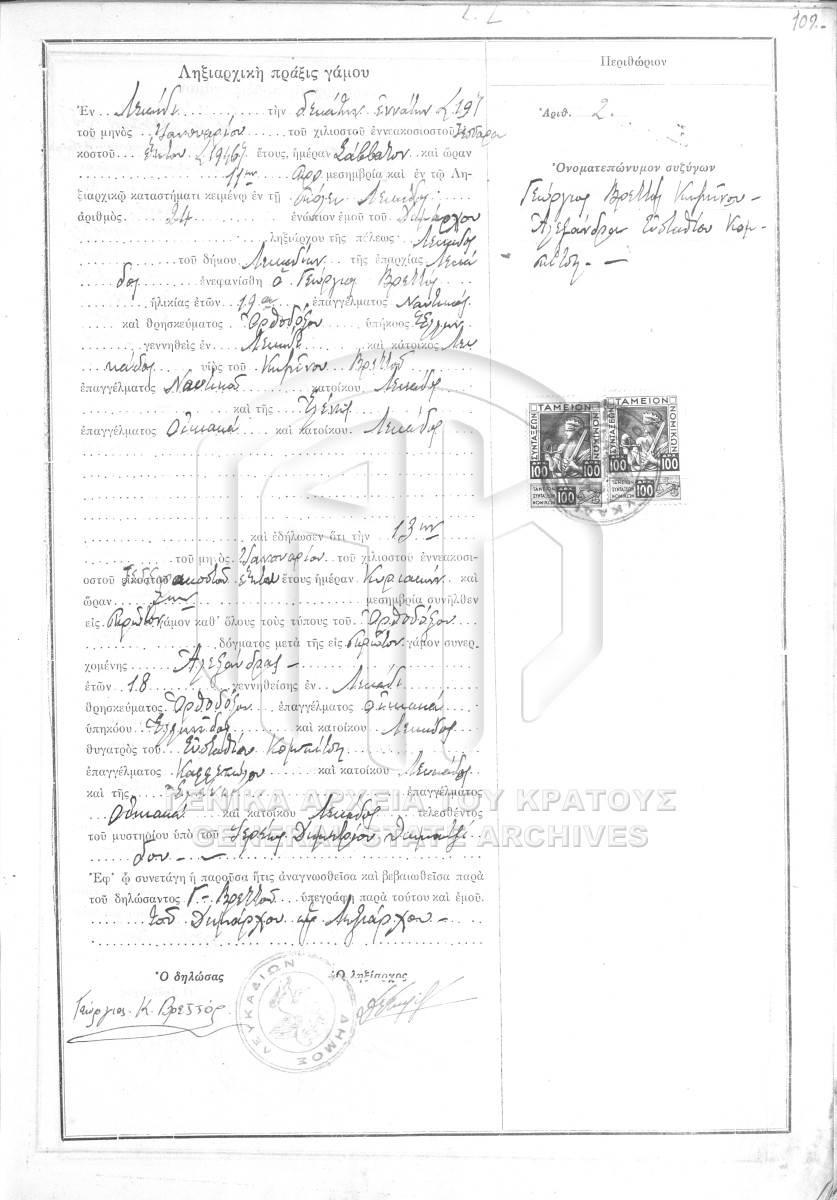 109.-
Ληξιαρχικὴ πρᾶξις γάμου
Ἐν Λευκάδι τὴν δεκάτην ἐννάτην (19)
τοῦ μηνὸς Ἰανουαρίου τοῦ χιλιοστοῦ ἐννεακοσιοστοῦ τεσσαρα
κοστοῦ ἕκτου (1946) ἔτους, ἡμέραν Σάββατον καὶ ὥραν
11ην π.μ. μεσημβρία καὶ ἐν τῷ Λη-
ξιαρχικῷ καταστήματι κειμένῳ ἐν τῇ πόλει Λευκάδος
ἀριθμὸς 24 ἐνώπιον ἐμοῦ τοῦ Δημάρχου
ληξιάρχου τῆς πόλεως Λευκάδος
τοῦ δήμου Λευκαδίων τῆς ἐπαρχίας Λευκά
δος ἐνεφανίσθη ὁ Γεώργιος Βρεττός
ἡλικίας ἐτῶν 19 ἐπαγγέλματος Ναυτικός
καὶ θρησκεύματος Ὀρθοδόξου ὑπήκοος Ἕλλην
γεννηθεὶς ἐν Λευκάδι καὶ κάτοικος Λευ
κάδος υἱὸς τοῦ Κυμίνου Βρεττοῦ
ἐπαγγέλματος Ναυτικοῦ κατοίκου Λευκάδος
καὶ τῆς Ἑλένης
ἐπαγγέλματος Οἰκιακά καὶ κατοίκου Λευκάδος
καὶ ἐδήλωσεν ὅτι τὴν 13ην
τοῦ μηνὸς Ἰανουαρίου τοῦ χιλιοστοῦ ἐννεακοσι-
οστοῦ εἰκοστοῦ τεσσαρακοστοῦ ἕκτου ἔτους ἡμέραν Κυριακήν καὶ
ὥραν 7ην μεσημβρία συνῆλθεν
εἰς πρῶτον γάμον καθ' ὅλους τοὺς τύπους τοῦ Ὀρθοδόξου
δόγματος μετὰ τῆς εἰς πρῶτον γάμον συνερ-
χομένης Ἀλεξάνδρας -
ἐτῶν 18 γεννηθείσης ἐν Λευκάδι
θρησκεύματος Ὀρθοδόξου ἐπαγγέλματος οἰκιακά
ὑπηκόου Ἑλληνίδος καὶ κατοίκου Λευκάδος
θυγατρὸς τοῦ Εὐσταθίου Κομπίτση
ἐπαγγέλματος Καφφεπώλου καὶ κατοίκου Λευκάδος
καὶ τῆς ἐπαγγέλματος
Οἰκιακά καὶ κατοίκου Λευκάδος τελεσθέντος
τοῦ μυστηρίου ὑπὸ τοῦ Ἱερέως Δημητρίου
Ἐφ' ᾧ συνετάγη ἡ παροῦσα ἥτις ἀναγνωσθεῖσα καὶ βεβαιωθεῖσα παρὰ
τοῦ δηλώσαντος Γ. Βρεττοῦ ὑπεγράφη παρὰ τούτου καὶ ἐμοῦ.
τοῦ Δημάρχου ὡς Ληξιάρχου -
Ὁ δηλώσας
Ὁ ληξίαρχος
Γεώργιος Κ. Βρεττός
ΔΗΜΟΣ ΛΕΥΚΑΔΙΩΝ
Περιθώριον
Ἀριθ. 2.
Ὀνοματεπώνυμον συζύγων
Γεώργιος Βρεττός Κυμίνου -
Ἀλεξάνδρα Εὐσταθίου Κομ
πίτση. -
ΤΑΜΕΙΟΝ ΣΥΝΤΑΞΕΩΝ ΝΟΜΙΚΩΝ
100 100
ΤΑΜΕΙΟΝ ΣΥΝΤΑΞΕΩΝ ΝΟΜΙΚΩΝ 100
ΤΑΜΕΙΟΝ ΣΥΝΤΑΞΕΩΝ ΝΟΜΙΚΩΝ
100 100
ΤΑΜΕΙΟΝ ΣΥΝΤΑΞΕΩΝ ΝΟΜΙΚΩΝ 100
ΓΕΝΙΚΑ ΑΡΧΕΙΑ ΤΟΥ ΚΡΑΤΟΥΣ
GENERAL STATE ARCHIVES